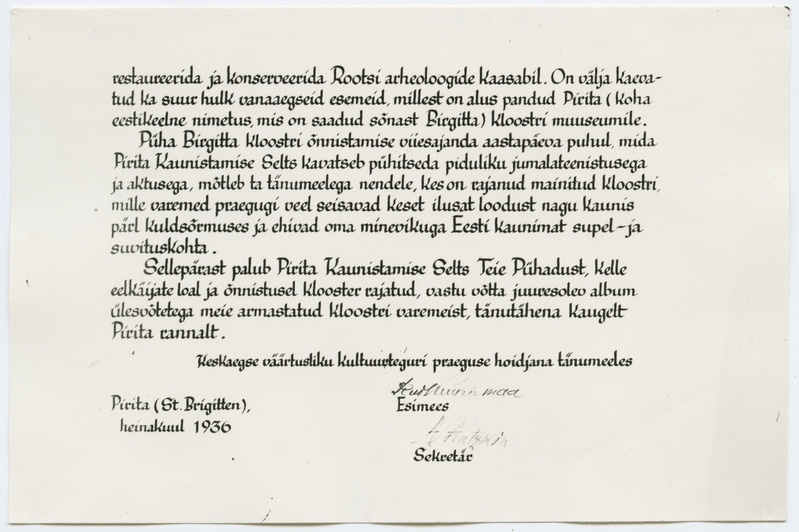 restaureerida ja konserveerida Rootsi arheoloogide kaasabil. On välja kaeva-
tud ka suur hulk vanaaegseid esemeid, millest on alus pandud Pirita (koha
eestikeelne nimetus, mis on saadud sõnast Birgitta) kloostri muuseumile.
Püha Birgitta kloostri õnnistamise viiesajanda aastapäeva puhul, mida
Pirita Kaunistamise Selts kavatseb pühitseda piduliku jumalateenistusega
ja aktusega, mõtleb ta tänumeelega nendele, kes on rajanud mainitud kloostri,
mille varemed praegugi veel seisavad keset ilusat loodust nagu kaunis
pärl kuldsõrmuses ja ehivad oma minevikuga Eesti kaunimat supel-ja
suvituskohta.
Sellepärast palub Pirita Kaunistamise Selts Teie Pühadust, kelle
eelkäijate loal ja õnnistusel klooster rajatud, vastu võtta juuresolev album
ülesvõtetega meie armastatud kloostri varemeist, tänutähena kaugelt
Pirita rannalt.
Keskaegse väärtusliku kultuurteguri praeguse hoidjana tänumeeles
Pirita (St. Brigitten),
Esimees
heinakuul 1936
Sekretär